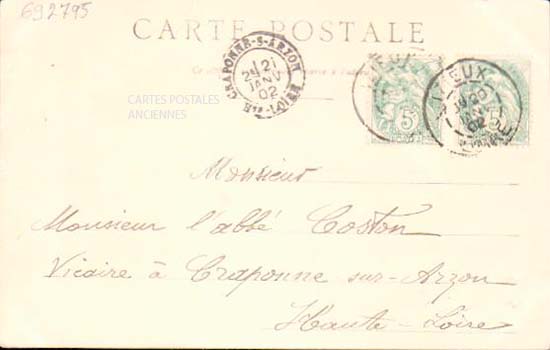 692795
CARTE POSTALE
CRAPONNE-S-ARZON
21
JANV
02
HTE-LOIRE
CARTES POSTALES
ANCIENNES
5
5
20
JANV
02
Monsieur
Monsieur l'abbé Coston
Vicaire à Craponne sur-Arzon
Haute-Loire